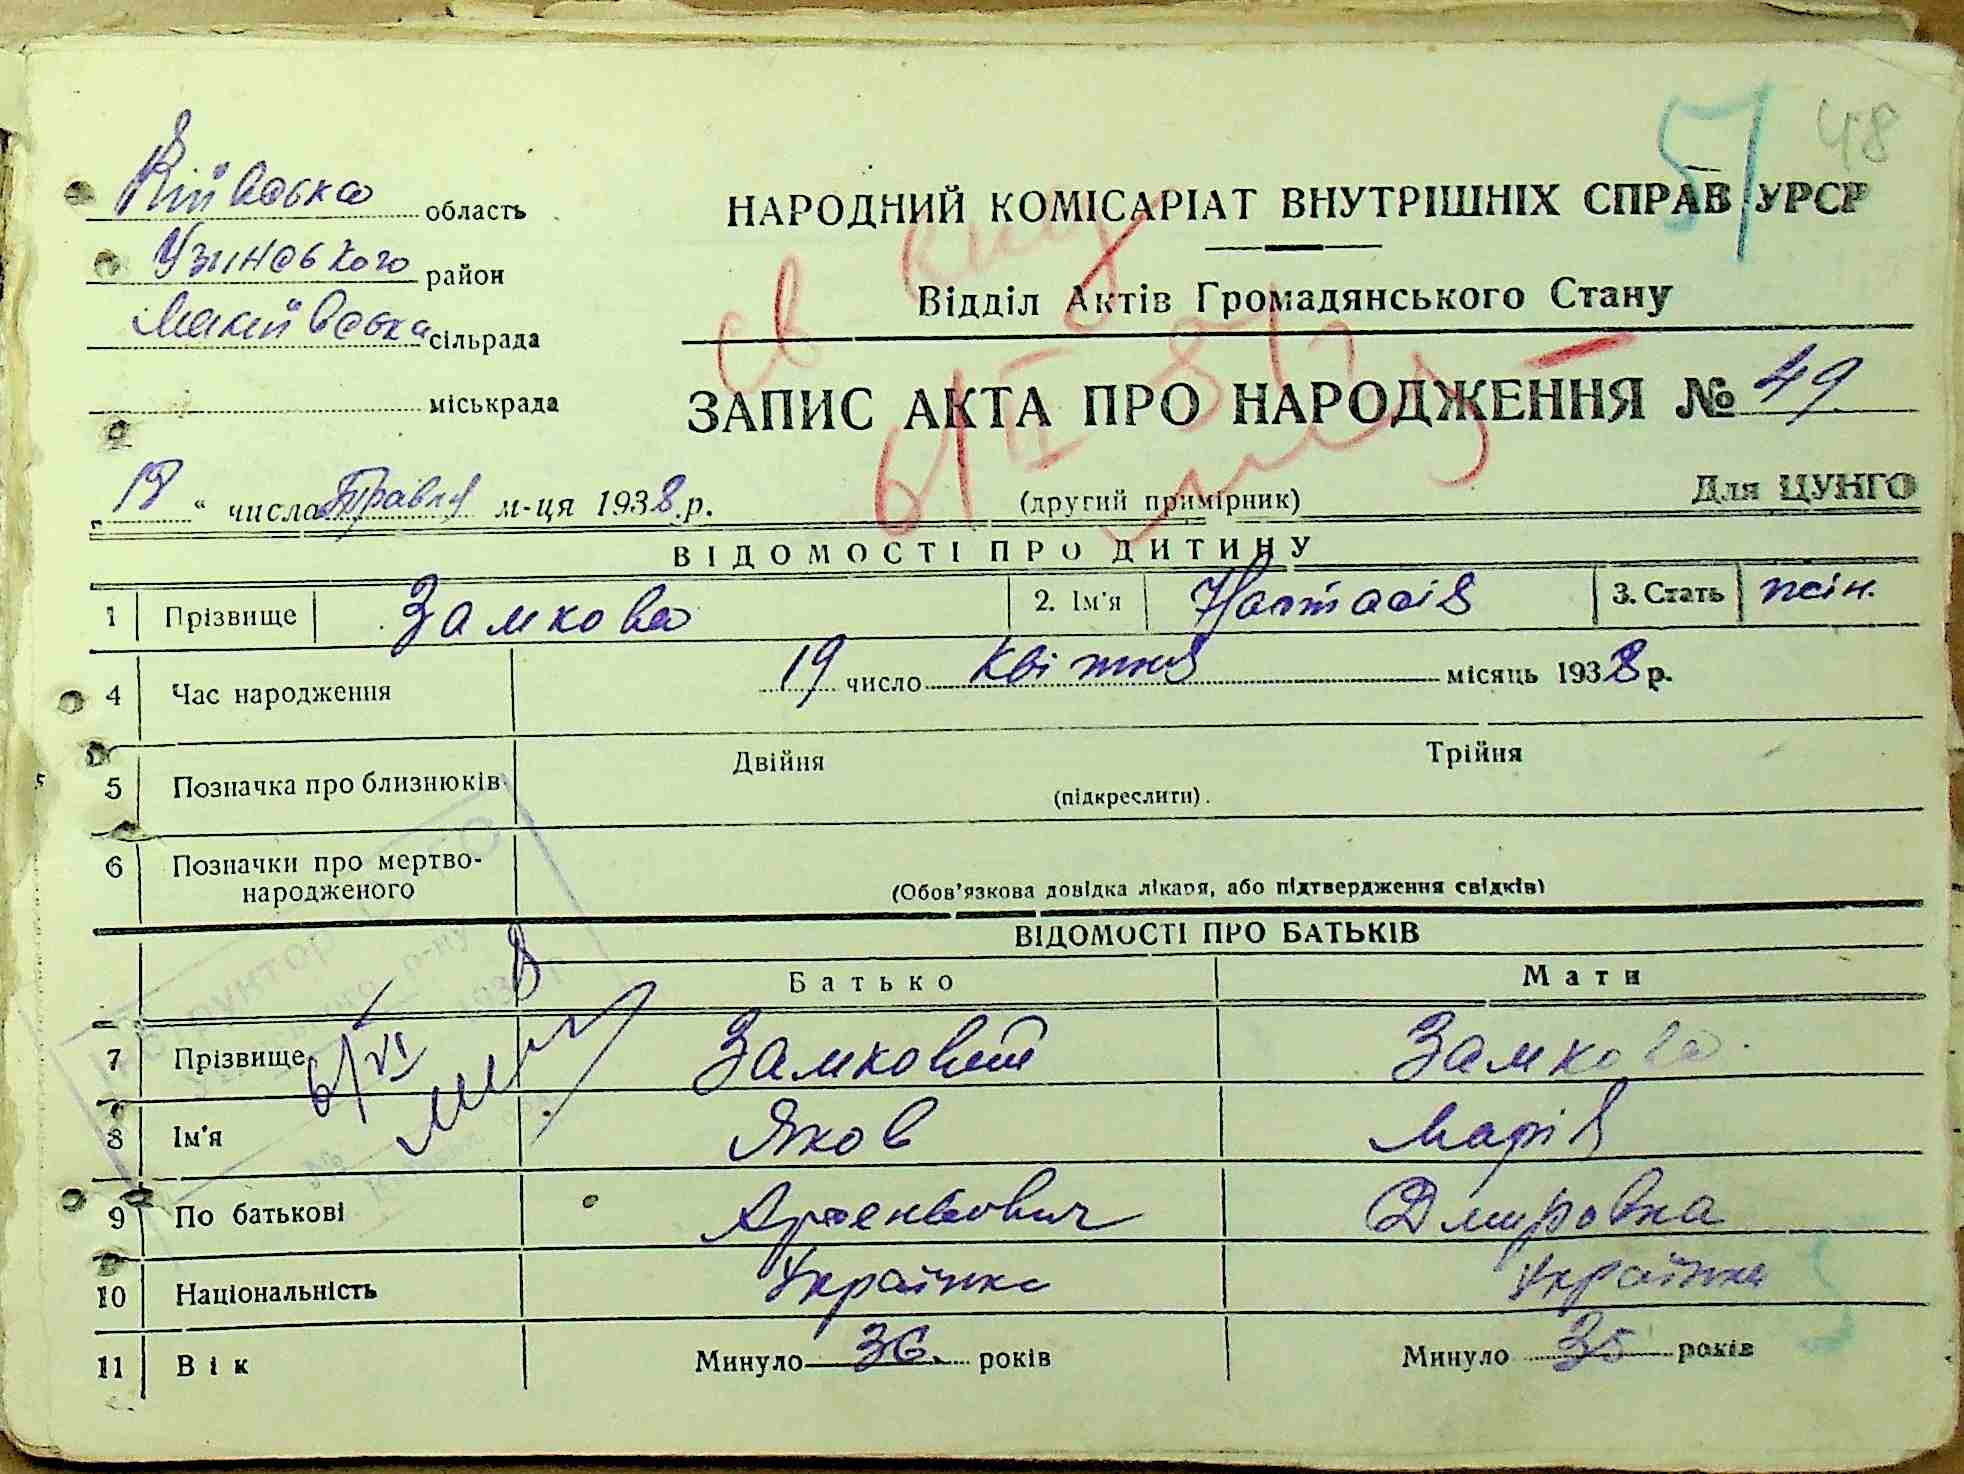 51 48
Київська область
Узинського район
Макіївська сільрада
міськрада
НАРОДНИЙ КОМІСАРІАТ ВНУТРІШНІХ СПРАВ УРСР
Відділ Актів Громадянського Стану
ЗАПИС АКТА ПРО НАРОДЖЕННЯ № 49
„ 18 “ числа Травня м-ця 1938 р.
(другий примірник)
Для ЦУНГО
ВІДОМОСТІ ПРО ДИТИНУ
1 Прізвище Замкова 2. Ім'я Настасія 3. Стать жін.
4 Час народження 19 число Квітня місяць 1938 р.
5 Позначка про близнюків Двійня Трійня
(підкреслити).
6 Позначки про мертво-
народженого
(Обов'язкова довідка лікаря, або підтвердження свідків)
ВІДОМОСТІ ПРО БАТЬКІВ
Батько Мати
7 Прізвище Замковий Замкова
6/VI
8 Ім'я Яков Марія
9 По батькові Арсеньович Дмировна
10 Національність Українка Українка
11 Вік Минуло 36. років Минуло 35 років